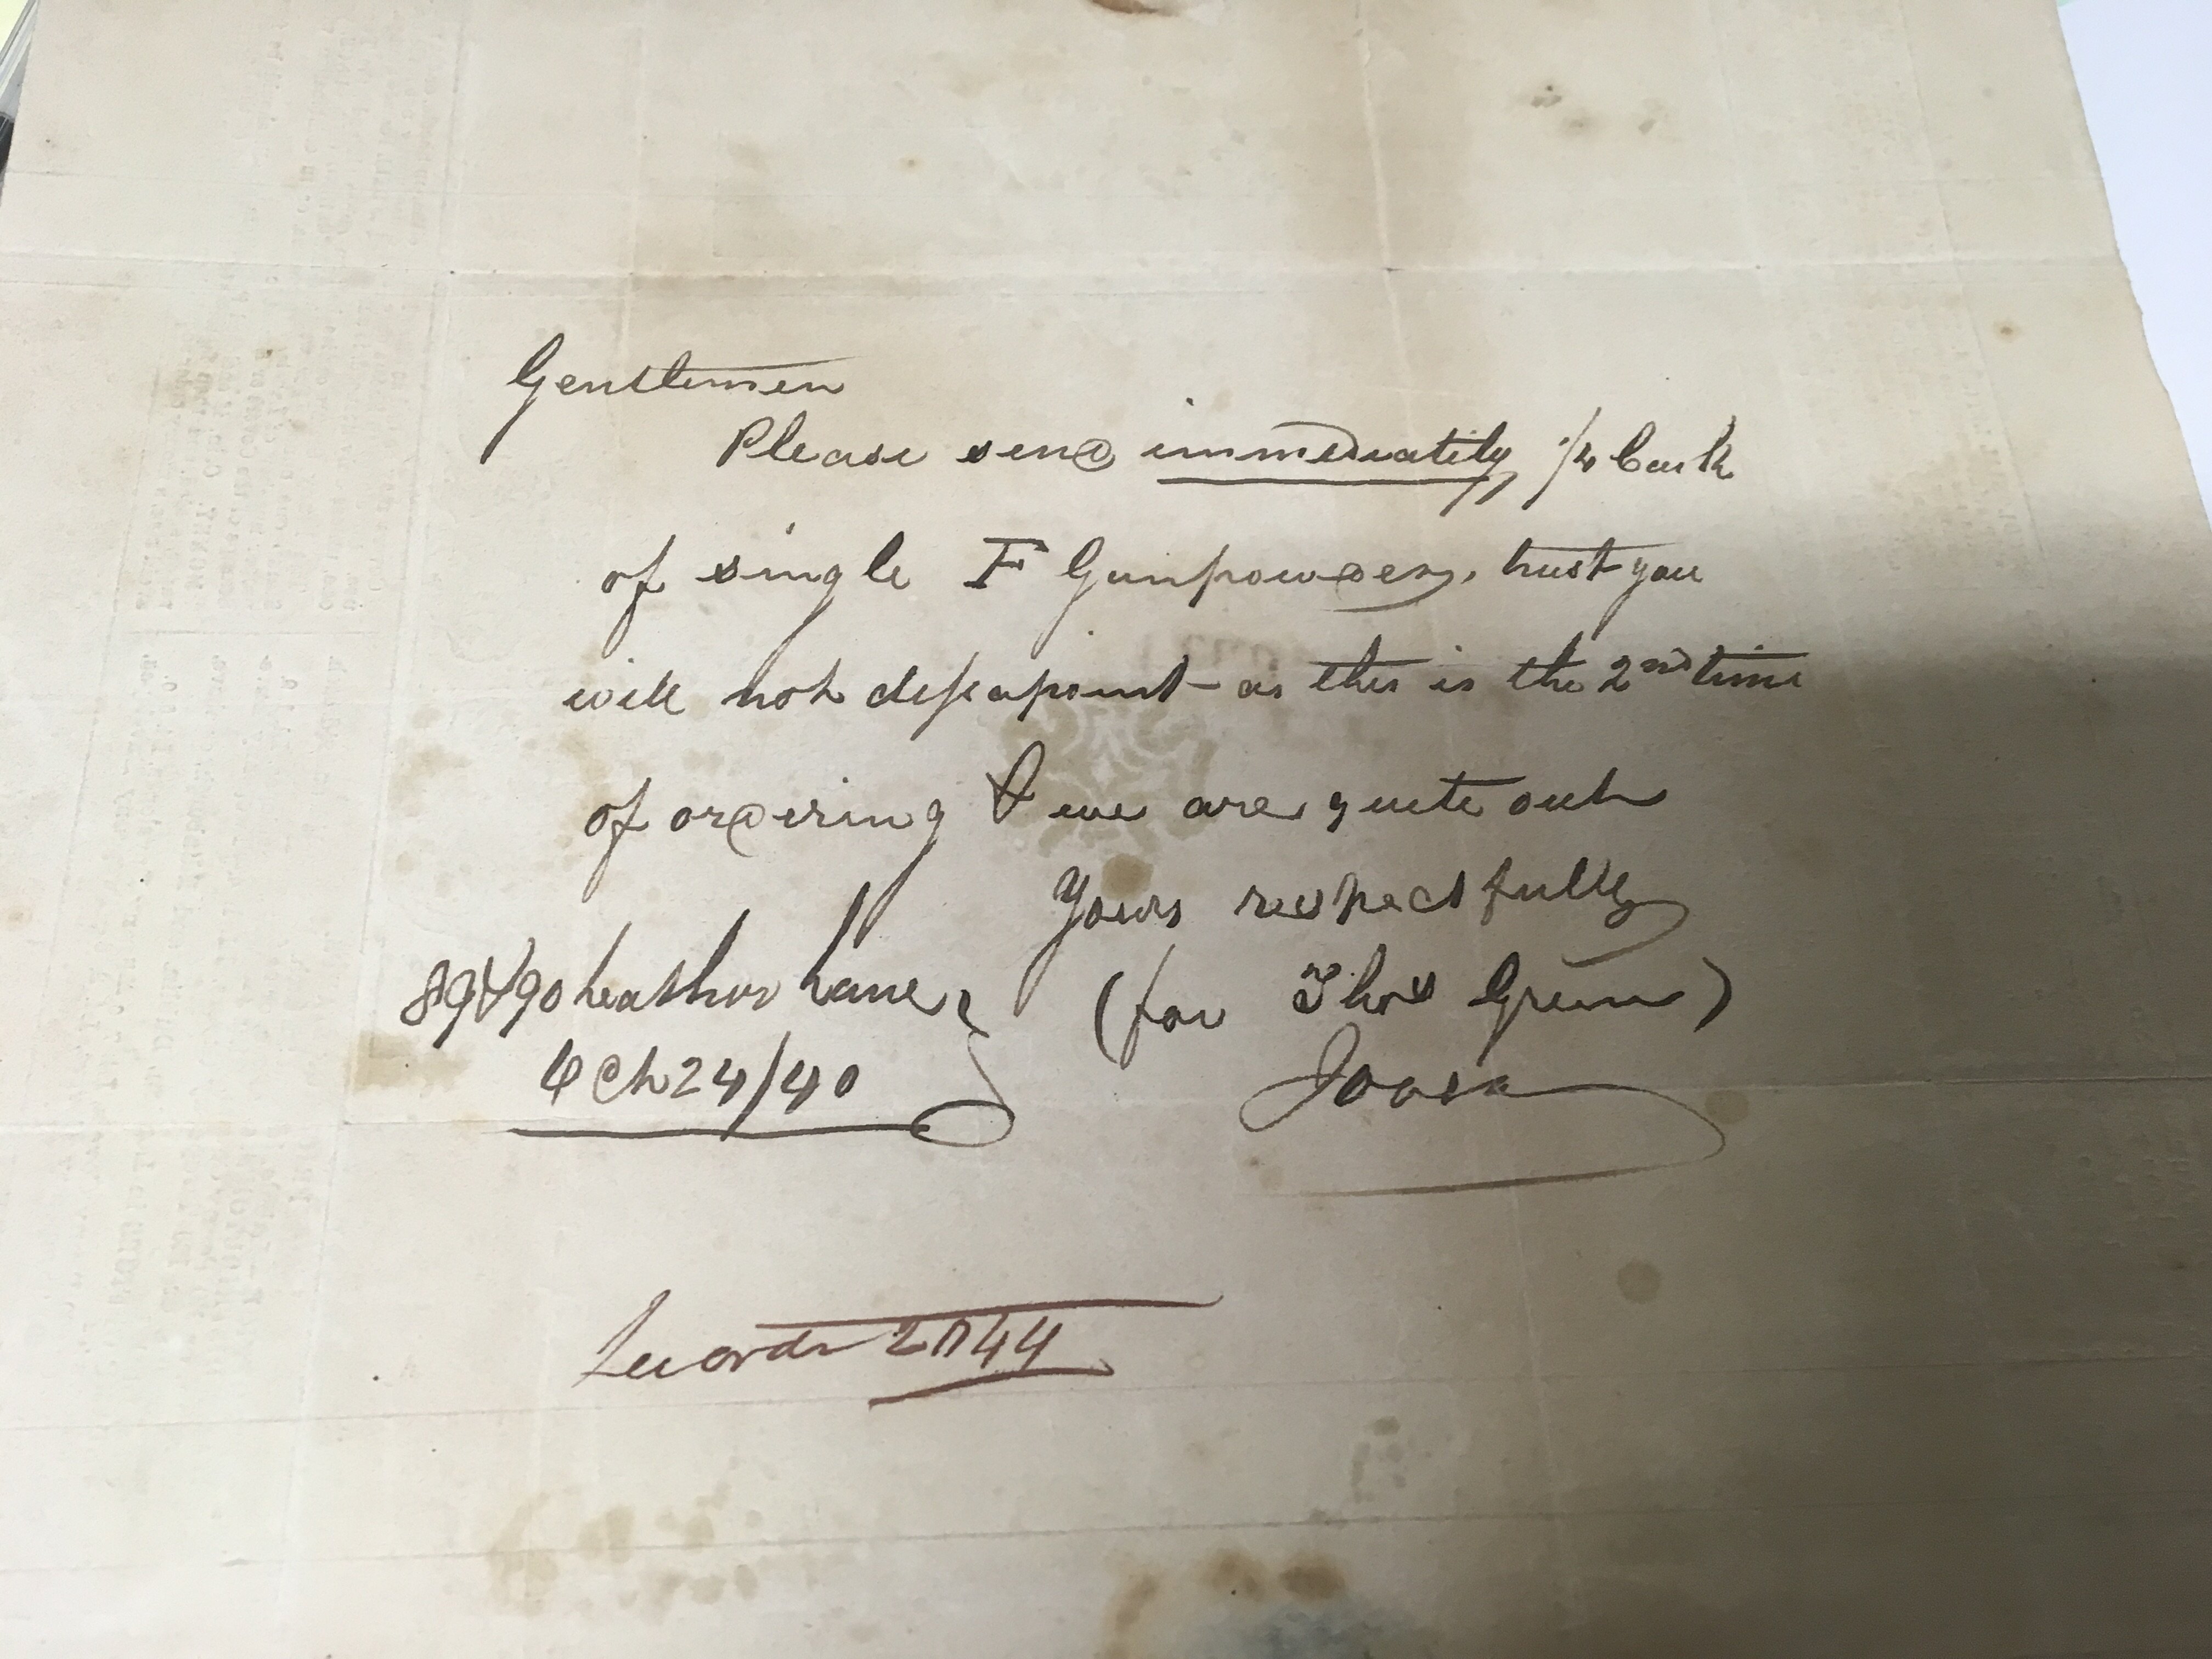 Gentlemen
Please send immediately 1/4 Cask
of single F Gunpowder, trust you
will not disapoint - as this is the 2nd time
of ordering & we are quite out
Yours respectfully
89&90 Leather Lane (for Thos Green)
24/40
2044